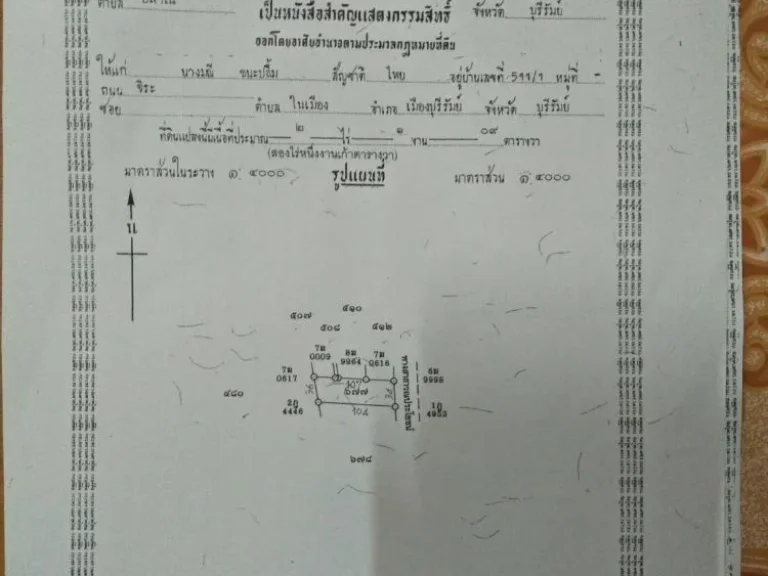 ตำบล
จังหวัด บุรีรัมย์
เป็นหนังสือสำคัญแสดงกรรมสิทธิ์
ออกโดยอาศัยอำนาจตามประมวลกฎหมายที่ดิน
ให้แก่ นางมณี ชนะปรั้ม สัญชาติ ไทย อยู่บ้านเลขที่ 511/1 หมู่ที่ -
ถนน จิระ
ซอย ตำบล ในเมือง อำเภอ เมืองบุรีรัมย์ จังหวัด บุรีรัมย์
ที่ดินแปลงนี้มีเนื้อที่ประมาณ ๒ ไร่ ๑ งาน ๐๙ ตารางวา
(สองไร่หนึ่งงานเก้าตารางวา)
มาตราส่วนในระวาง ๑: ๔๐๐๐ รูปแผนที่ มาตราส่วน ๑: ๔๐๐๐
น
๕๐๗ ๕๑๐
๕๐๘ ๕๑๒
7ม 0617
7ม 0009
8ม 9964
7ม 0616
6ม 9998
๔๘๐
๖๗๗
2ภ 4446
104
1ภ 4953
ทางสาธารณประโยชน์
๖๗๘